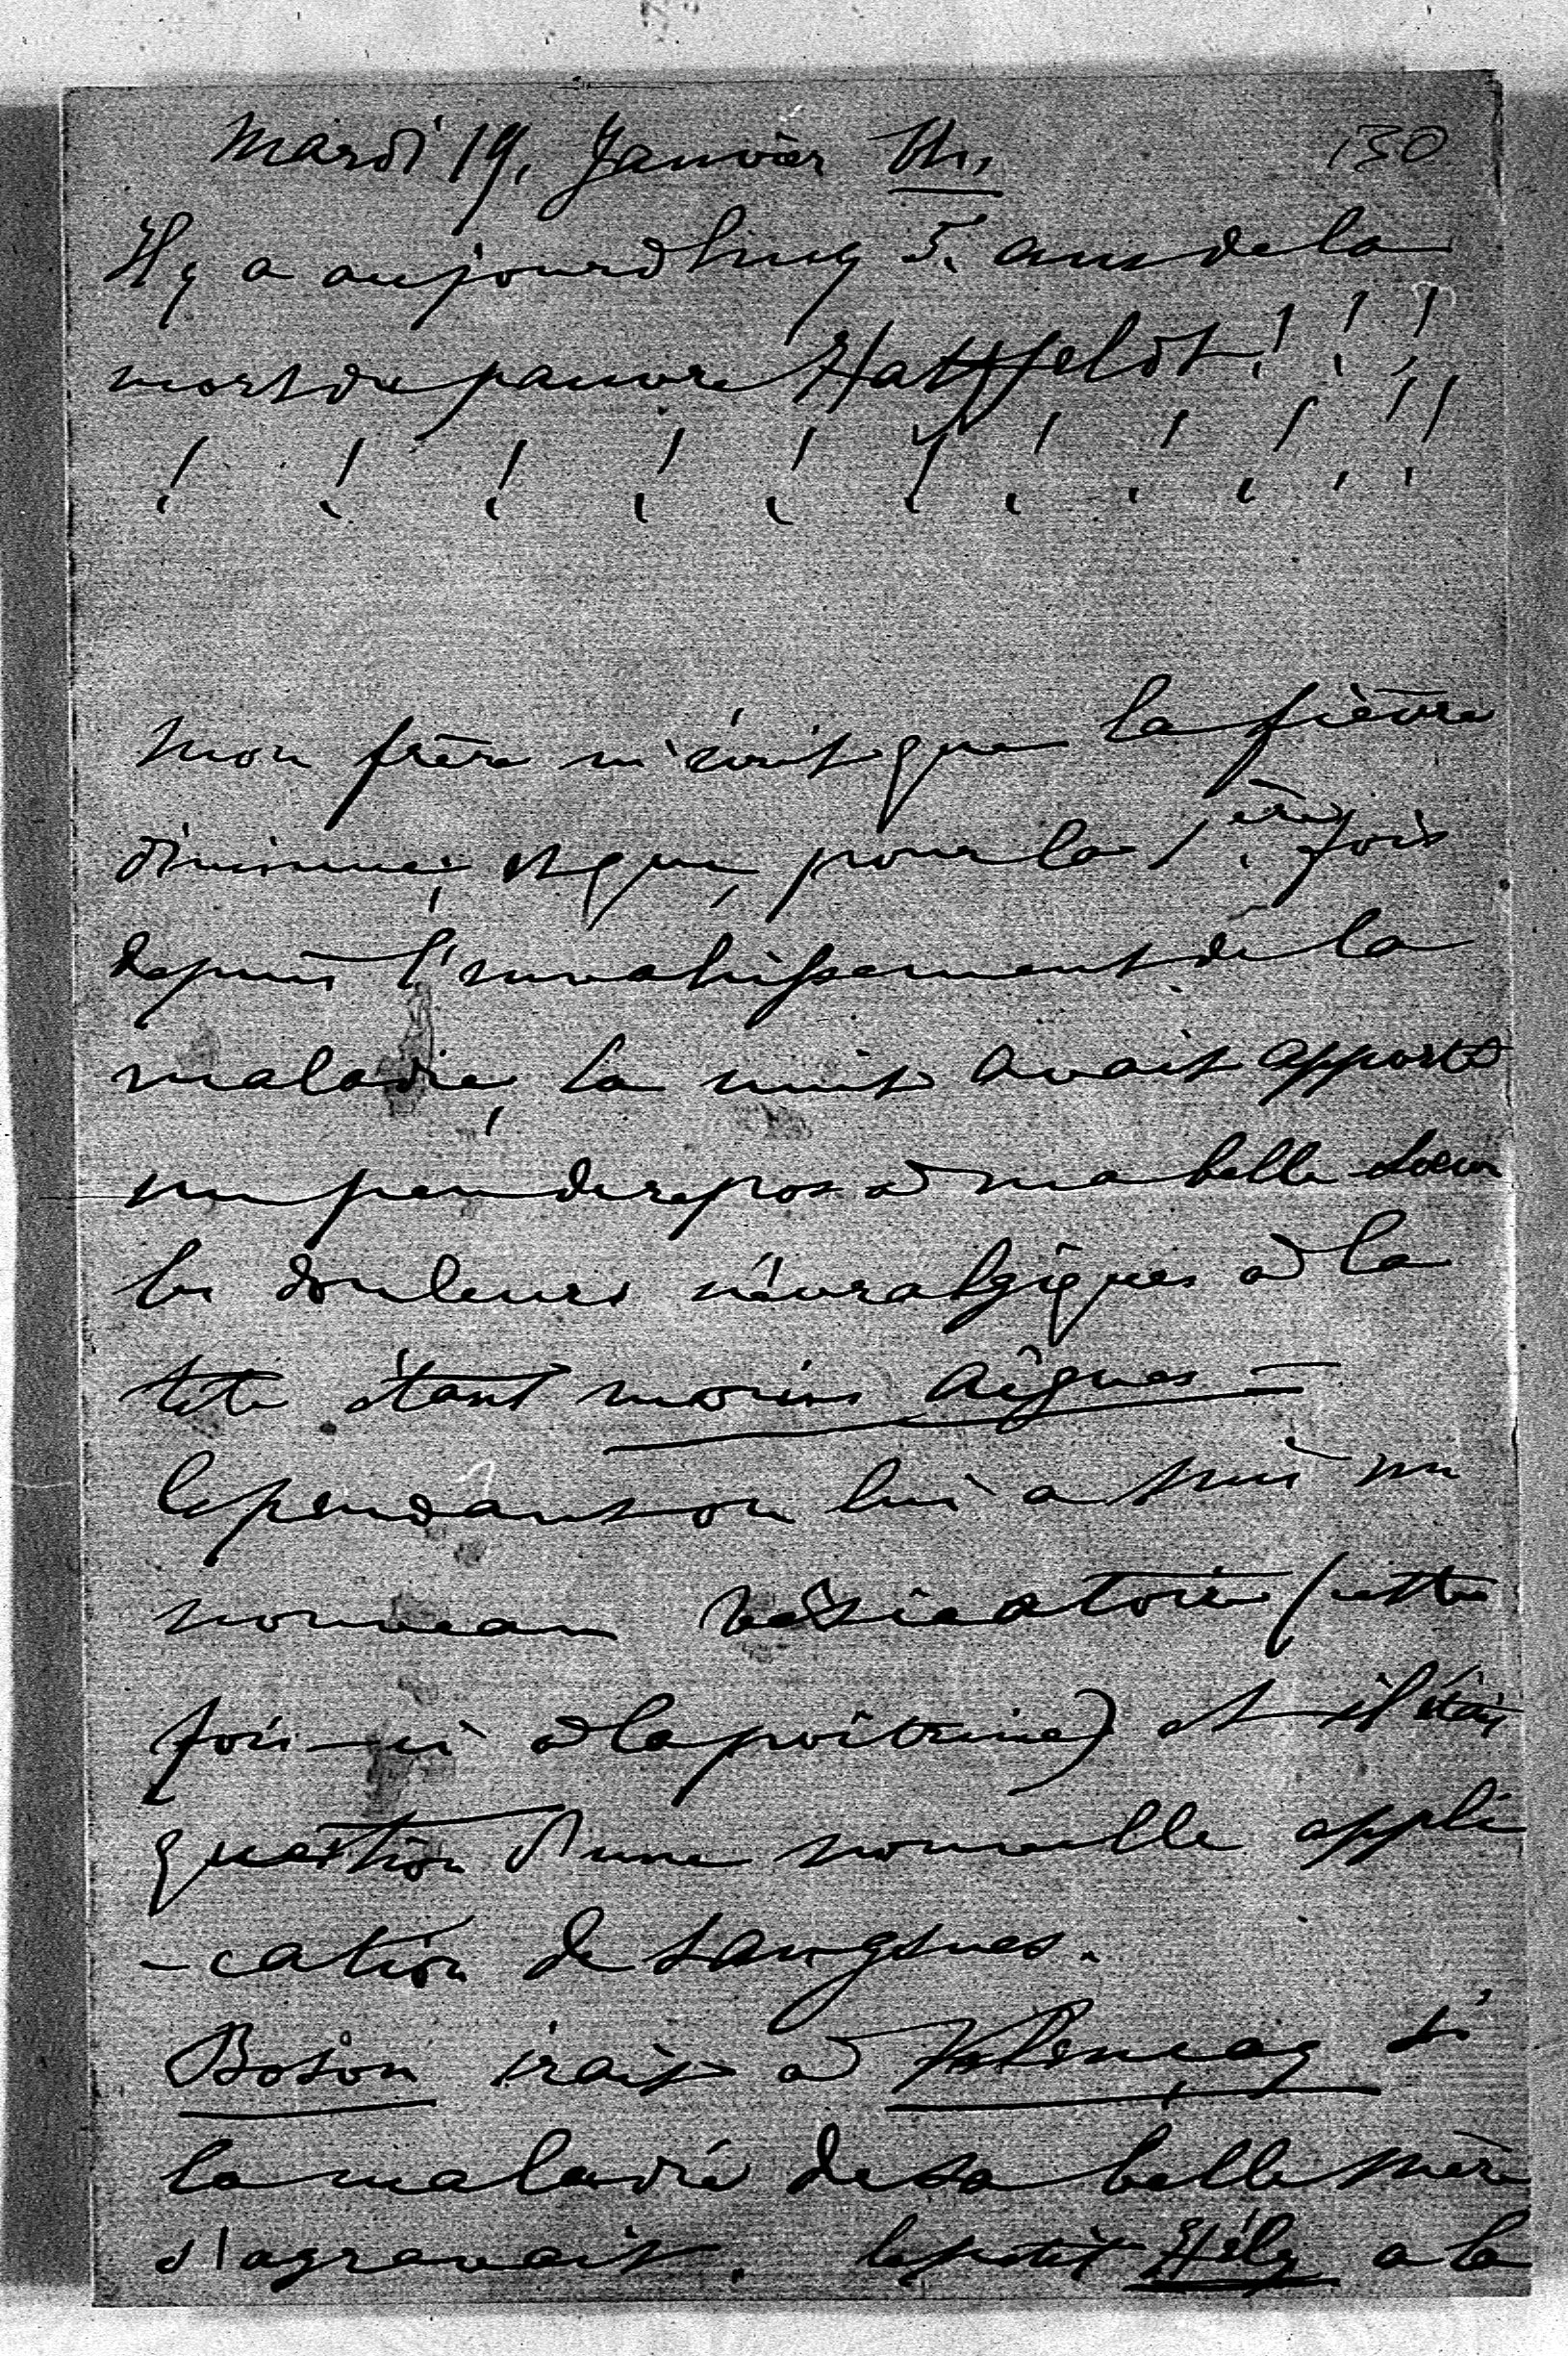 Mardi 19, Janvier Th., 130
Il y a aujourdhuy 5. ans de la
mort du pauvre Hattfeldt! ! !
! ! ! ! ! ! ! ! ! ! !
Mon frère m'écrit que la fièvre
diminue; et que, pour la 1ère fois
depuis l'envahissement de la
maladie, la nuit avait apporté
un peu de repos à ma belle Soeur
les douleurs névralgiques à la
tete étant moins aîgues =
Cependant on lui a mis un
nouveau vésicatoire (cette
fois-ci à la poitrine) et il était
question d'une nouvelle appli
-cation de sangsues.
Boson irait à Valencay si
la maladie de sa belle mère
s'agravait. le petit Hély a la